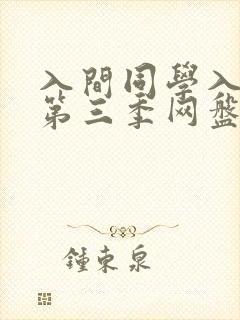 入間同學入
第三季网盘
鍾東泉